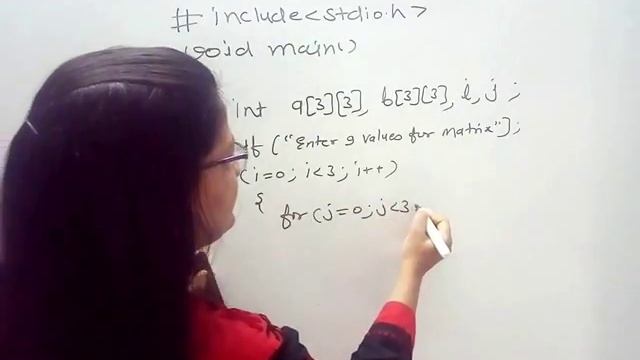 #include<stdio.h>
void main()
int a[3][3], b[3][3], i, j ;
tf ("Enter 9 values for matrix");
(i=0; i<3; i++)
{
for (j=0; j<3